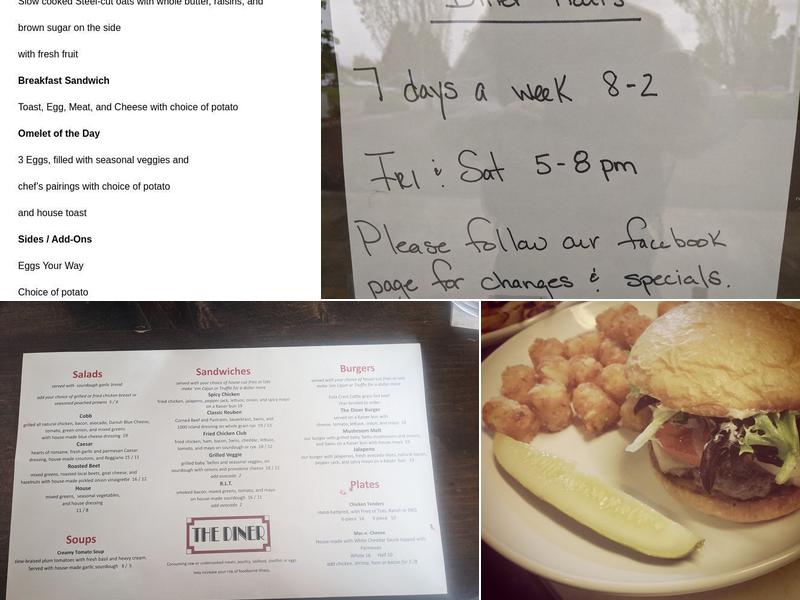 Slow cooked Steel-cut oats with whole butter, raisins, and
brown sugar on the side
with fresh fruit
Breakfast Sandwich
Toast, Egg, Meat, and Cheese with choice of potato
Omelet of the Day
3 Eggs, filled with seasonal veggies and
chef's pairings with choice of potato
and house toast
Sides / Add-Ons
Eggs Your Way
Choice of potato
Diner Hours
7 days a week 8-2
Fri & Sat 5-8 pm
Please follow our facebook
page for changes & specials.
Salads
served with sourdough garlic bread
add your choice of grilled or fried chicken breast or
seasoned poached prawns
Cobb
grilled all natural chicken, bacon, avocado, Danish Blue Cheese,
tomato, green onion, and mixed greens
with house made blue cheese dressing 19
Caesar
hearts of romaine, fresh garlic and parmesan Caesar
dressing, house made croutons, and Reggiano 15 / 11
Roasted Beet
mixed greens, roasted local beets, goat cheese, and
hazelnuts with house-made pickled onion vinaigrette 16 / 12
House
mixed greens, seasonal vegetables,
and house dressing
11 / 8
Soups
Creamy Tomato Soup
slow-braised plum tomatoes with fresh basil and heavy cream.
Served with house-made garlic sourdough 8 / 5
Sandwiches
served with your choice of house-cut fries or tots
make 'em Cajun or Truffle for a dollar more
Spicy Chicken
fried chicken, jalapenos, pepper jack, lettuce, onion, and spicy mayo
on a Kaiser bun 19
Classic Reuben
Corned Beef and Pastrami, Sauerkraut, Swiss, and
1000 island dressing on whole grain rye 19 / 13
Fried Chicken Club
fried chicken, ham, bacon, Swiss, cheddar, lettuce,
tomato, and mayo on sourdough or rye 19 / 12
Grilled Veggie
grilled baby bellas and seasonal veggies, on
sourdough with onions and provolone cheese 18 / 12
add avocado 2
B.L.T.
smoked bacon, mixed greens, tomato, and mayo
on house made sourdough 16 / 11
add avocado 2
THE DINER
Consuming raw or undercooked meats, poultry, seafood, shellfish or eggs
may increase your risk of foodborne illness.
Burgers
served with your choice of house-cut fries or tots
make 'em Cajun or Truffle for a dollar more
Cattle grass fed beef
char-broiled to order
The Diner Burger
served on a Kaiser bun with
cheese, tomato, lettuce, onion, and mayo
Mushroom Melt
our burger with grilled baby bella mushrooms and onions,
and Swiss on a Kaiser bun with house mayo
Jalapeno
our burger with jalapenos, fresh avocado slices, natural bacon,
pepper jack, and spicy mayo on a Kaiser bun
Plates
Chicken Tenders
Hand-battered, with Fries or Tots, Ranch or BBQ
Mac-n-Cheese
House-made with White Cheddar Sauce topped with
Parmesan
Whole 16 Half 10
add chicken, shrimp, ham or bacon for